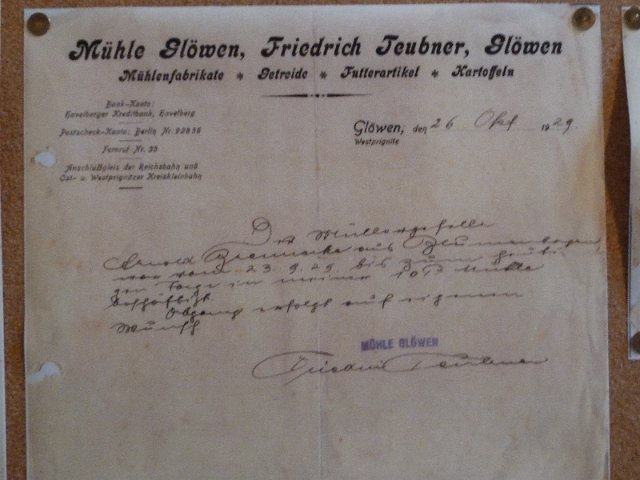 Mühle Glöwen, Friedrich Teubner, Glöwen
Mühlenfabrikate * Getreide * Futterartikel * Kartoffeln
Bank-Konto:
Havelberger Kreditbank, Havelberg
Postscheck-Konto: Berlin Nr. 92836
Fernruf Nr. 33
Anschlußgleis der Reichsbahn und
Ost- u. Westprignitzer Kreiskleinbahn
Glöwen, den 26 Okt. 1929.
Westprignitz
Der Müllergeselle
Arnold aus
war vom 23.9.29 bis zum heuti
gen Tage in meiner Mühle
beschäftigt
Abgang erfolgt auf eigenen
Wunsch
MÜHLE GLÖWEN
Friedrich Teubner